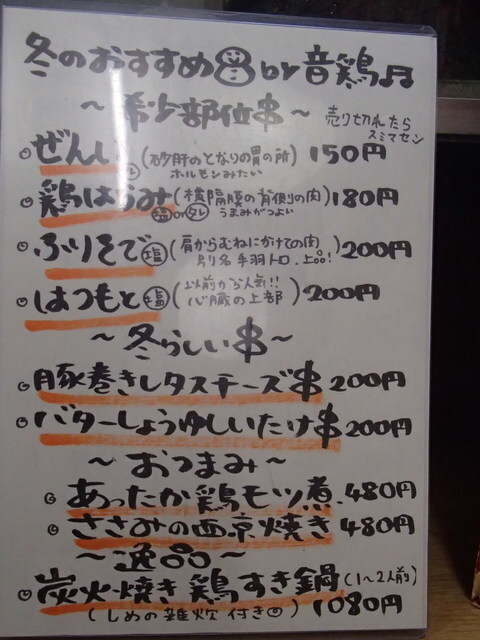 冬のおすすめ by 音鶏♬
～希少部位串～ 売り切れたらスミマセン
◎ぜんい (砂肝のとなりの胃の所) 150円
ホルモンみたい
◎鶏はらみ (横隔膜の背側の肉) 180円
塩 or タレ うまみがつよい
◎ふりそで 塩 (肩からむねにかけての肉) 200円
別名 手羽トロ、上品!
◎はつもと 塩 (以前から人気!!) 200円
心臓の上部
～冬らしい串～
◎豚巻きレタスチーズ串 200円
◎バターしょうゆしいたけ串 200円
～おつまみ～
◎あったか鶏モツ煮 480円
◎ささみの西京焼き 480円
～逸品～
◎炭火焼き鶏すき鍋 (1～2人前)
(しめの雑炊付き) 1080円